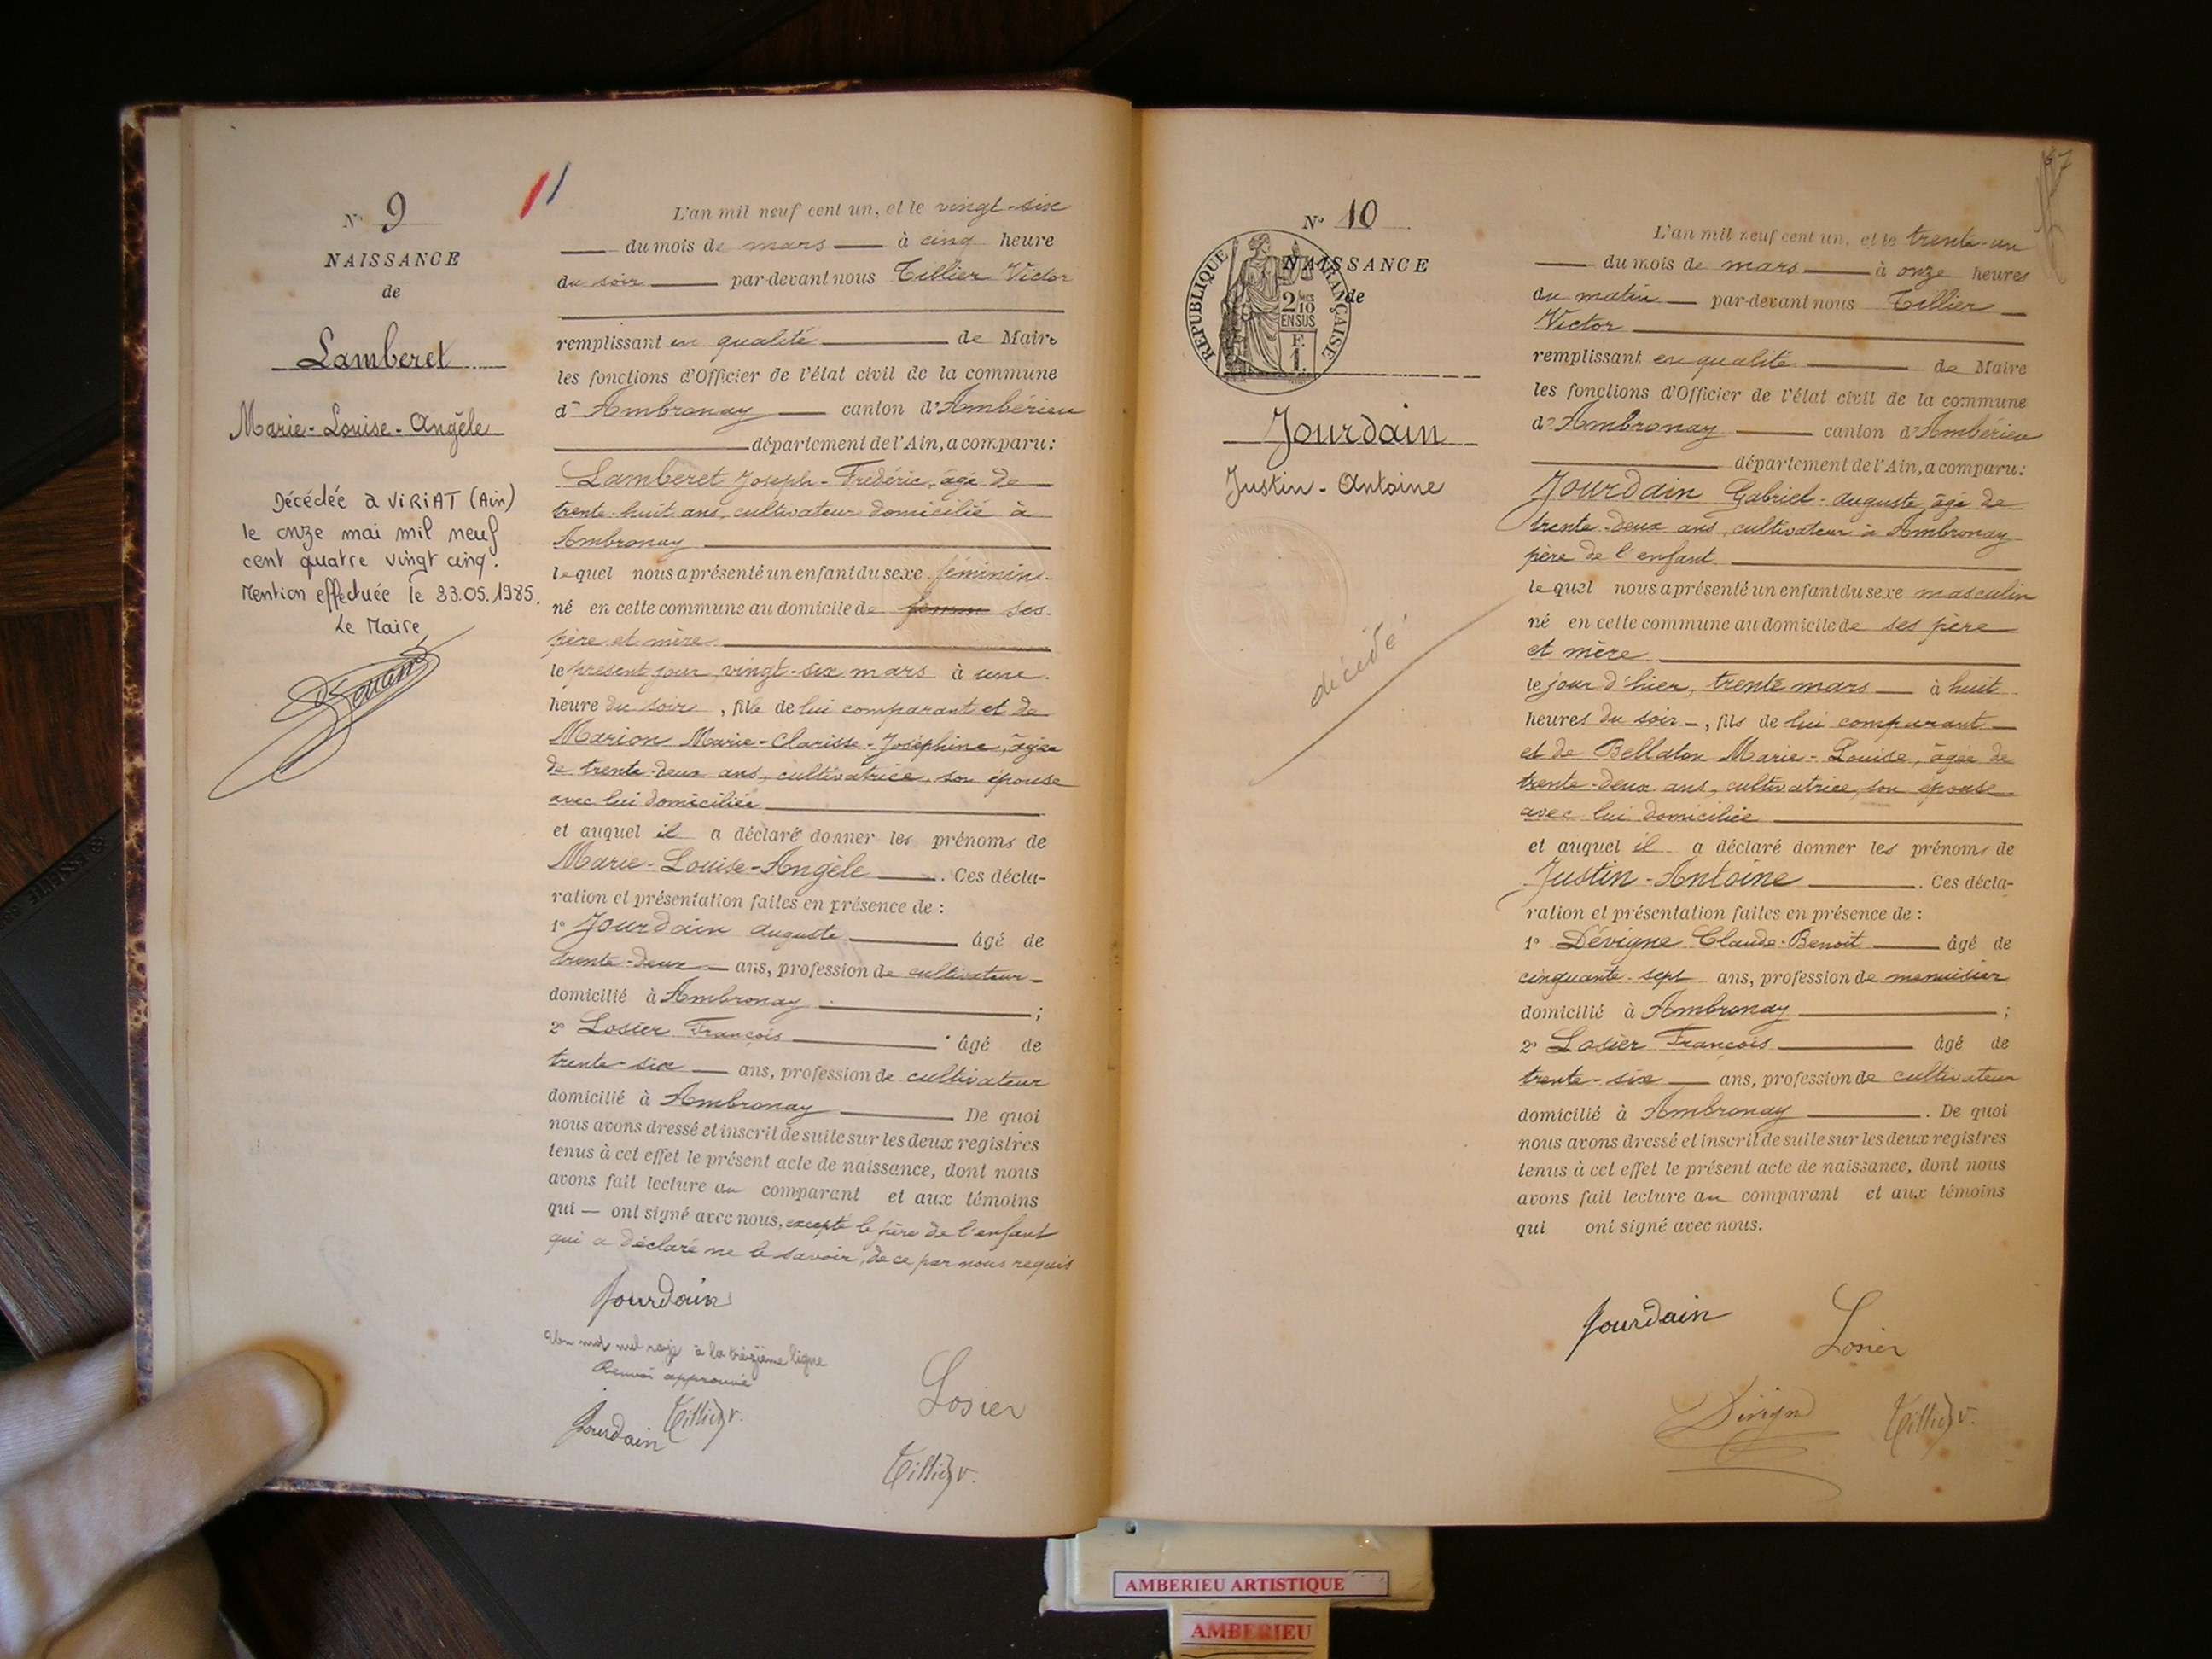 N° 9
NAISSANCE
de
Lamberet
Marie-Louise-Angèle
Décédée à VIRIAT (Ain)
le onze mai mil neuf
cent quatre vingt cinq.
Mention effectuée le 23.05.1985.
Le Maire
L'an mil neuf cent un, et le vingt-six
du mois de mars à cinq heure
du soir par-devant nous Tillier Victor
remplissant en qualité de Maire
les fonctions d'Officier de l'état civil de la commune
d'Ambronay canton d'Ambérieu
département de l'Ain, a comparu:
Lamberet Joseph-Frédéric, âgé de
trente-huit ans, cultivateur domicilié à
Ambronay
lequel nous a présenté un enfant du sexe féminin
né en cette commune au domicile de ses
père et mère
le présent jour vingt-six mars à une
heure du soir, fille de lui comparant et de
Marion Marie-Clarisse-Joséphine, âgée
de trente-deux ans, cultivatrice, son épouse
avec lui domiciliée
et auquel il a déclaré donner les prénoms de
Marie-Louise-Angèle. Ces décla-
ration et présentation faites en présence de :
1° Jourdain Auguste âgé de
trente-deux ans, profession de cultivateur
domicilié à Ambronay ;
2° Losier François âgé de
trente-six ans, profession de cultivateur
domicilié à Ambronay De quoi
nous avons dressé et inscrit de suite sur les deux registres
tenus à cet effet le présent acte de naissance, dont nous
avons fait lecture au comparant et aux témoins
qui ont signé avec nous, excepté le père de l'enfant
qui a déclaré ne le savoir, de ce par nous requis
Jourdain
Un mot nul rayé à la treizième ligne
Renvoi approuvé
Tillier v.
Jourdain
Losier
Tillier v.
N° 10
NAISSANCE
de
REPUBLIQUE FRANÇAISE
2/10
EN SUS
F.
1.
Jourdain
Justin-Antoine
décédé
L'an mil neuf cent un, et le trente-un
du mois de mars à onze heures
du matin par-devant nous Tillier
Victor
remplissant en qualité de Maire
les fonctions d'Officier de l'état civil de la commune
d'Ambronay canton d'Ambérieu
département de l'Ain, a comparu:
Jourdain Gabriel-Auguste, âgé de
trente-deux ans, cultivateur à Ambronay
père de l'enfant
lequel nous a présenté un enfant du sexe masculin
né en cette commune au domicile de ses père
et mère
le jour d'hier, trente mars à huit
heures du soir, fils de lui comparant
et de Bellaton Marie-Louise, âgée de
trente-deux ans, cultivatrice, son épouse
avec lui domiciliée
et auquel il a déclaré donner les prénoms de
Justin-Antoine. Ces décla-
ration et présentation faites en présence de :
1° Dévigne Claude-Benoit âgé de
cinquante-sept ans, profession de menuisier
domicilié à Ambronay ;
2° Losier François âgé de
trente-six ans, profession de cultivateur
domicilié à Ambronay. De quoi
nous avons dressé et inscrit de suite sur les deux registres
tenus à cet effet le présent acte de naissance, dont nous
avons fait lecture au comparant et aux témoins
qui ont signé avec nous.
Jourdain
Losier
Tillier v.
AMBERIEU ARTISTIQUE
AMBERIEU